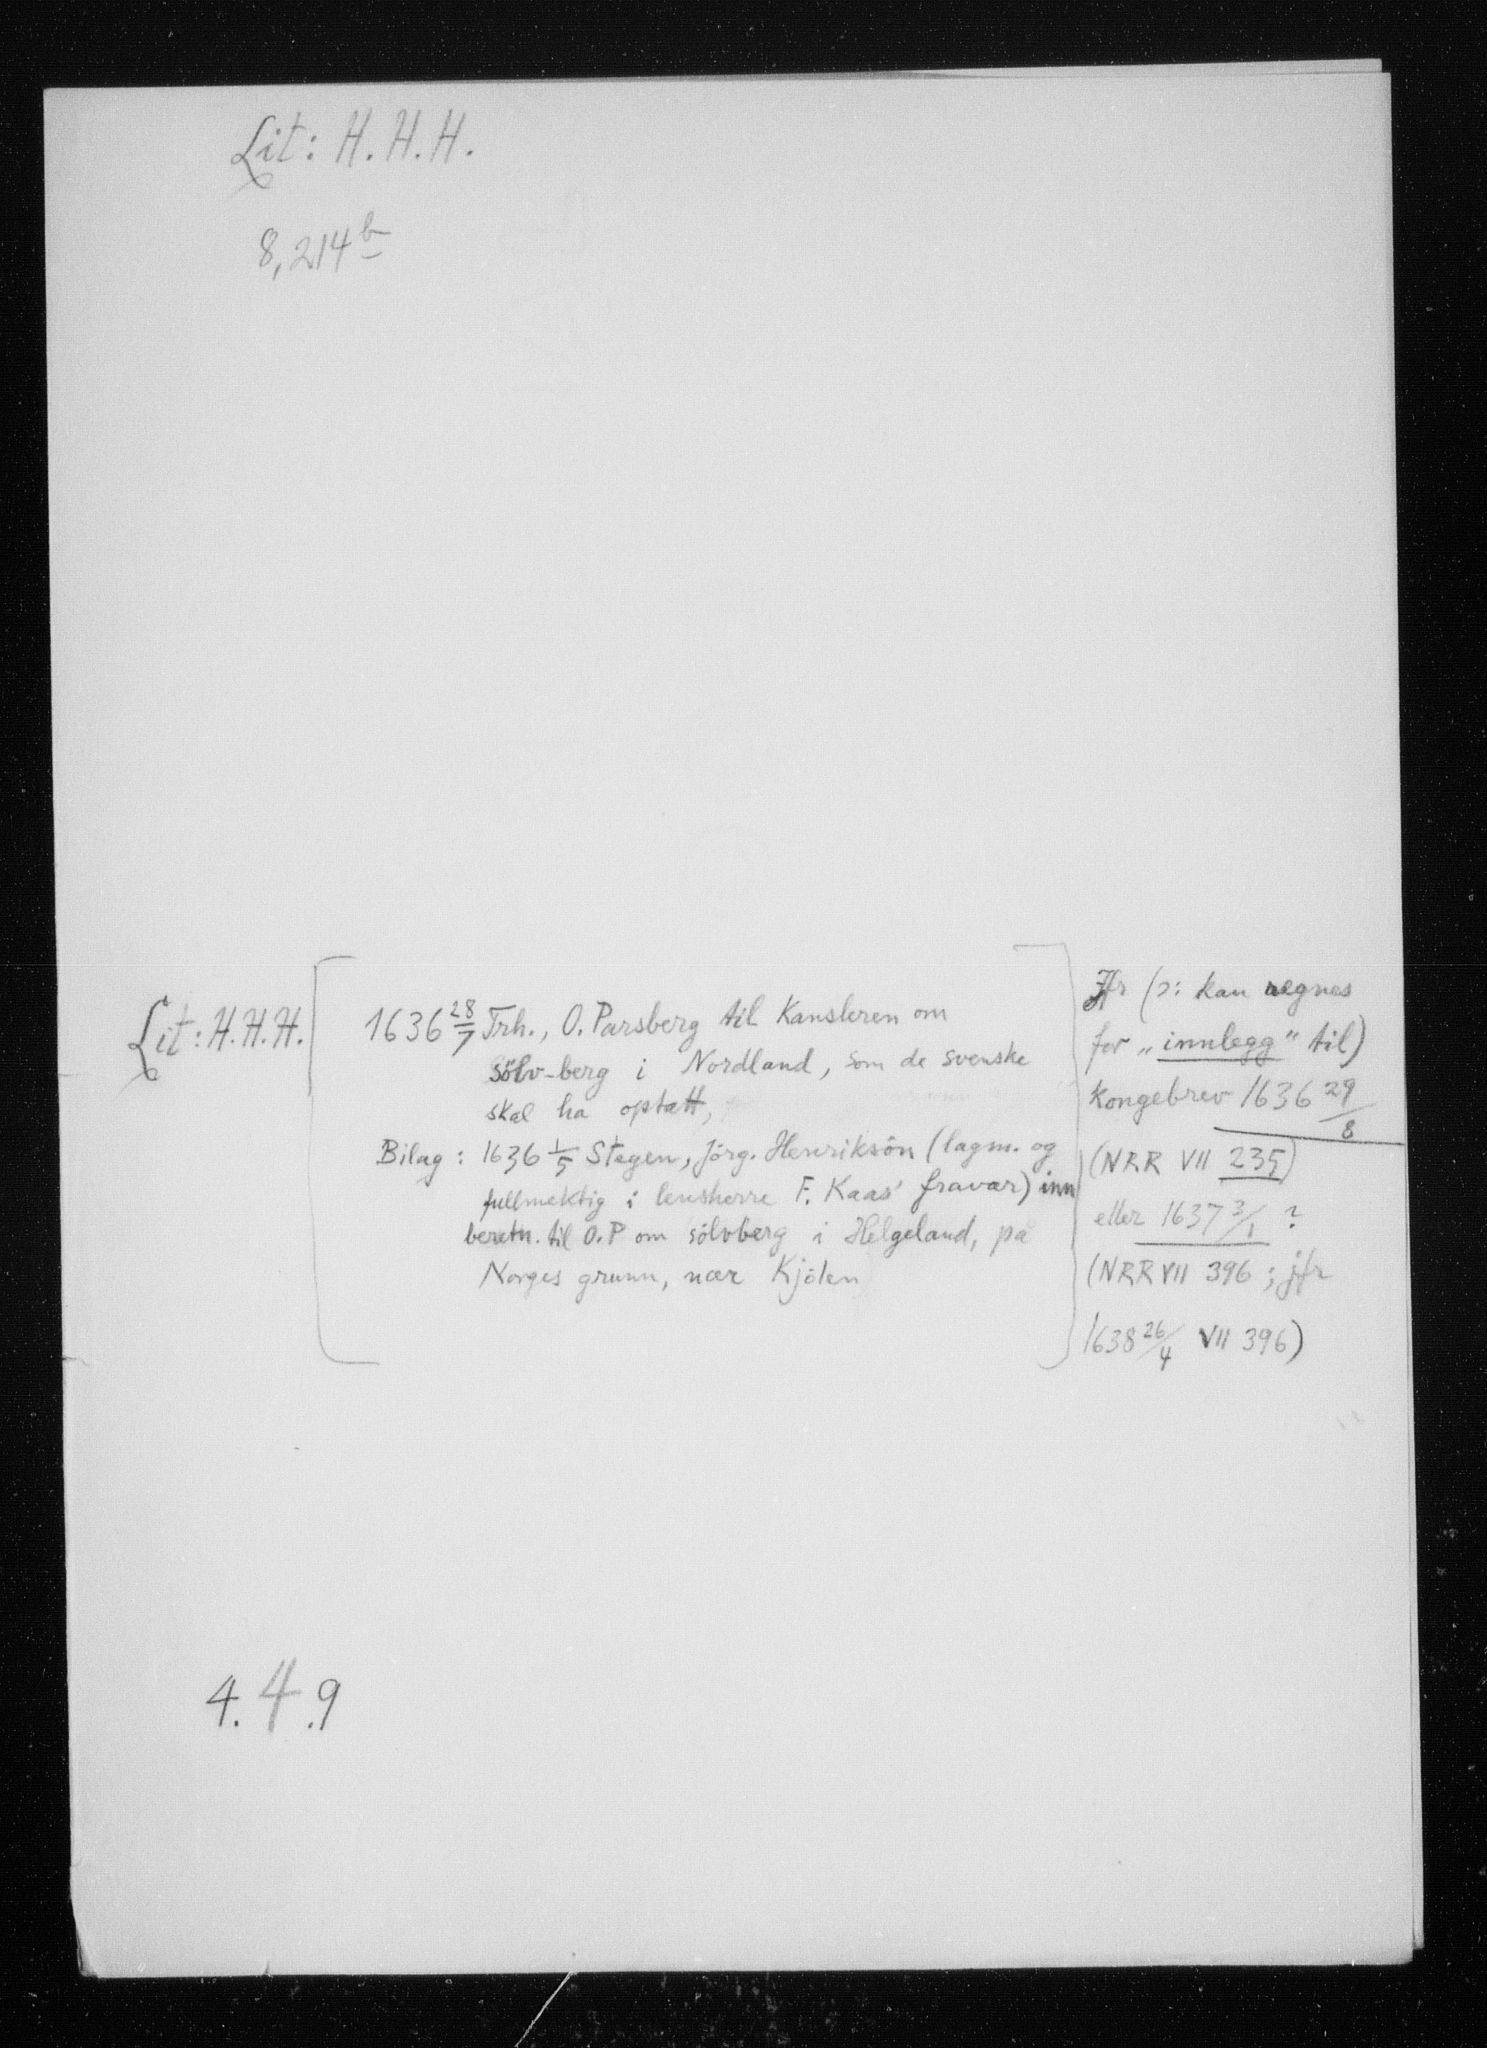 Lit: H. H. H.
8,214 b
Lit: H. H. H.
1636 28/7 Trh., O. Parsberg til Kansleren om
sölv-berg i Nordland, som de svenske
skal ha optatt,
Bilag: 1636 1/5 Stegen, Jörg. Henriksön (lagm. og
fullmektig i lensherre F. Kaas' fravær) inn
beretn. til O.P om sölvberg i Helgeland, på
Norges grunn, nær Kjölen
Jfr (ɔ: kan regnes
for „innlegg" til)
Kongebrev 1636 29/8
(NRR VII 235)
eller 1637 3/1 ?
(NRR VII 396; jfr
1638 26/4 VII 396)
4. 4. 9